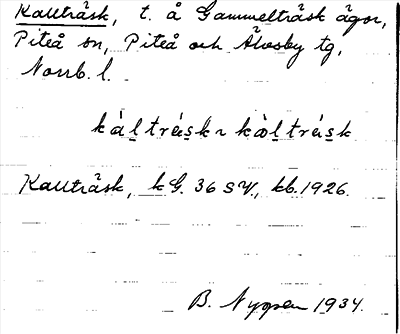 Kallträsk, t. å Gammelträsk ägor,
Piteå sn, Piteå och Älvsby tg,
Norrb. l.
Kallträsk, kG. 36 SV, kb. 1926.
B. 1934.